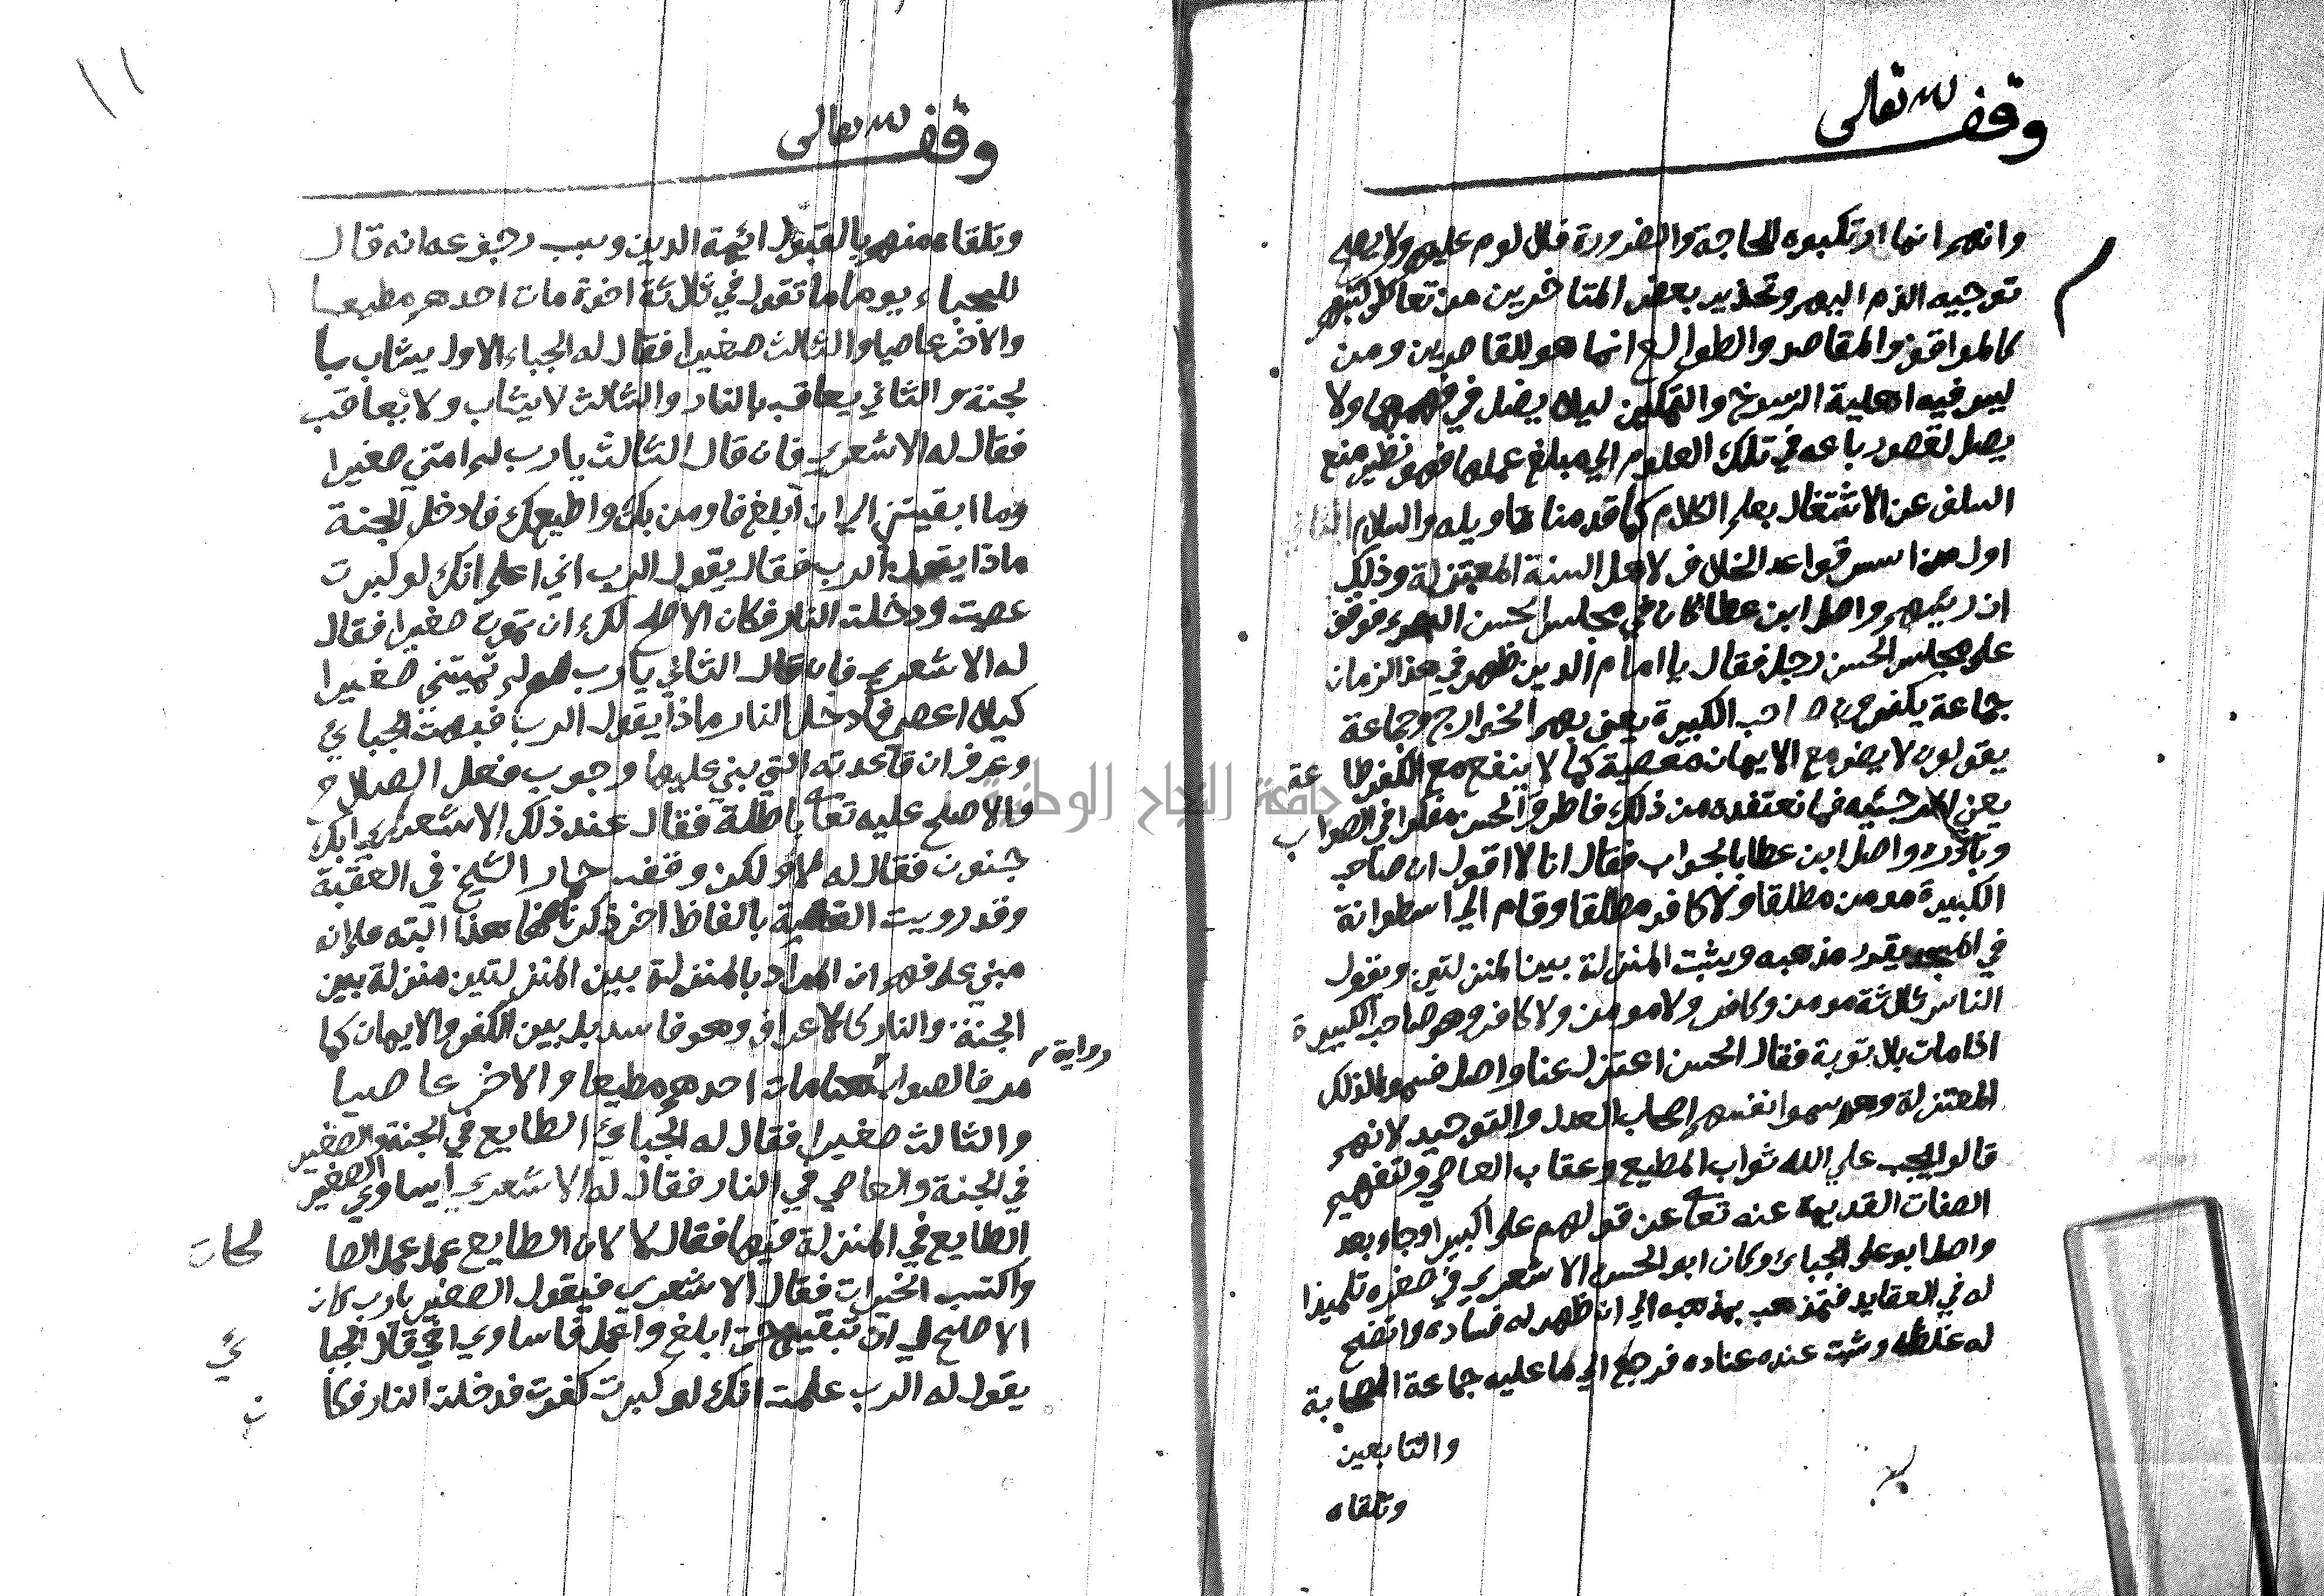 وقف لله تعالى
وانهم انما ارتكبوه للحاجة والضرورة فلا لوم عليهم ولا يصلح
توجيه الذم اليهم وتحذير بعض المتاخرين من تعاطي كتبهم
كالمواقف والمقاصد والطوالع انما هو للقاصرين ومن
ليس فيه اهلية الرسوخ والتمكين ليلا يضل في فهمها ولا
يصل لقصور باعه في تلك العلوم الي مبلغ عملها فهو نظير منع
السلف عن الاشتغال بعلم الكلام كما قدمنا تاويله والسلام
اول من اسس قواعد الخلاف لاهل السنة المعتزلة وذلك
ان رييهم واصل ابن عطا كان في مجلس الحسن البصري فوقف
على مجلس الحسن رجل فقال يا امام الدين ظهر في هذا الزمان
جماعة يكفرون صاحب الكبيرة يعني بهم الخوارج وجماعة
يقولون لا يضر مع الايمان معصية كما لا ينفع مع الكفر طاعة
يعني المرجئيه فما نعتقده من ذلك فاطرق الحسن مفكرا في الصواب
وبادره واصل ابن عطا بالجواب فقال انا لا اقول ان صاحب
الكبيرة مومن مطلقا ولا كافر مطلقا وقام الي اسطوانة
في المسجد يقرر مذهبه ويثبت المنزلة بين المنزلتين ويقول
الناس ثلاثة مومن وكافر ولا مومن ولا كافر وهو صاحب الكبيرة
اذا مات بلا توبة فقال الحسن اعتزل عنا واصل فسموا لذلك
المعتزلة وهم سموا انفسهم اصحاب العدل والتوحيد لانهم
قالوا يجب علي الله ثواب المطيع وعقاب العاصي ولنفيهم
الصفات القديمة عنه تعا عن قولهم علوا كبيرا وجاء بعد
واصل ابو علي الجبائ وكان ابو الحسن الاشعري في صغره تلميذا
له في العقايد فتمذهب بمذهبه الي ان ظهر له فساده واتضح
له غلطه وثبت عنده عناده فرجع الي ما عليه جماعة الصحابة
والتابعين
وتلقاه
١١
وقف لله تعالى
وتلقاه منهم بالقبول ائمة الدين وسبب رجوعه انه قال
للجباء يوما ما تقول في ثلاثة اخوة مات احدهم مطيعا
والاخر عاصيا والثالث صغيرا فقال له الجباء الاول يثاب با
لجنة والثاني يعاقب بالنار والثالث لا يثاب ولا يعاقب
فقال له الاشعري فان قال الثالث يا رب لم امتني صغيرا
وما ابقيتني الي ان ابلغ فاومن بك واطيعك فادخل الجنة
ماذا يقول الرب فقال يقول الرب اني اعلم انك لو كبرت
عصيت ودخلت النار فكان الاصلح لك ان تموت صغيرا فقال
له الاشعري فان قال الثاني يا رب لم لم تمتني صغيرا
كيلا اعصي فادخل النار ماذا يقول الرب فبهت الجبائ
وعرف ان قاعدته التي بني عليها وجوب فعل الصلاح
والاصلح عليه تعا باطلة فقال عند ذلك الاشعري ابك
جنون فقال له لا ولكن وقف حمار الشيخ في العقبة
وقد رويت القصة بالفاظ اخر ذكرناها هذا البته علي انه
مبني علي فهم ان المراد بالمنزلة بين المنزلتين منزلة بين
الجنة والنار كالاعراف وهو فاسد بل بين الكفر والايمان كما
مر فالصواب رواية مات احدهم مطيعا والاخر عاصيا
والثالث صغيرا فقال له الجبائ الطايع في الجنة والصغير
في الجنة والعاصي في النار فقال له الاشعري ايساوي الصغير
الطايع في المنزلة فيها فقال لا لان الطايع عمل عمل الصا لحات
واكتسب الخيرات فقال الاشعري فيقول الصغير يا رب كان
الاصلح لي ان تبقيني حتي ابلغ واعمل فاساوي اخي قال الجبا ئي
يقول له الرب علمت انك لو كبرت كفرت فدخلت النار فكا ن
جامعة النجاح الوطنية